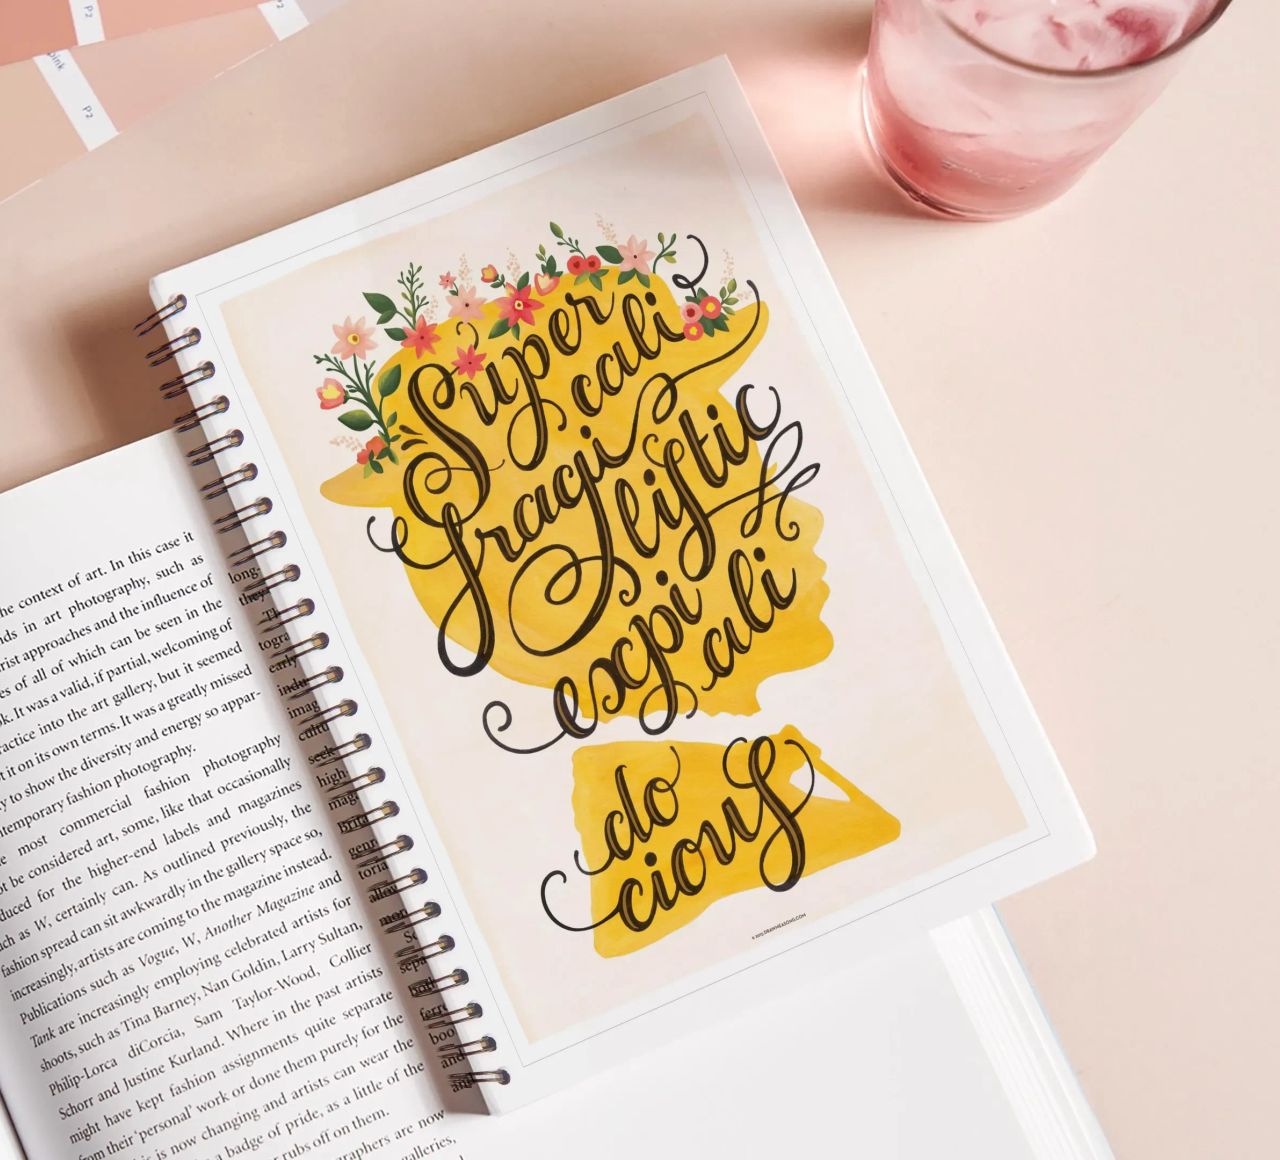 P2
pink
P2
Super
cali
fragi
listic
expi
ali
do
cious
© 2012 DRAWMEASONG.COM
he context of art. In this case it
nds in art photography, such as
rist approaches and the influence of
es of all of which can be seen in the
k. It was a valid, if partial, welcoming of
ractice into the art gallery, but it seemed
t it on its own terms. It was a greatly missed
y to show the diversity and energy so appar-
temporary fashion photography.
e most commercial fashion photography
ot be considered art, some, like that occasionally
duced for the higher-end labels and magazines
ch as W, certainly can. As outlined previously, the
fashion spread can sit awkwardly in the gallery space so,
increasingly, artists are coming to the magazine instead.
Publications such as Vogue, W, Another Magazine and
Tank are increasingly employing celebrated artists for
shoots, such as Tina Barney, Nan Goldin, Larry Sultan,
Philip-Lorca diCorcia, Sam Taylor-Wood, Collier
Schorr and Justine Kurland. Where in the past artists
might have kept fashion assignments quite separate
from their 'personal' work or done them purely for the
is is now changing and artists can wear the
a badge of pride, as a little of the
r rubs off on them.
graphers are now
galleries,
long-
they
Th
togra
early
indu
imag
cultu
seek
high
mag
Brita
genr
toria
allow
mon
Sc
sepa
both
ferre
boo
and
and